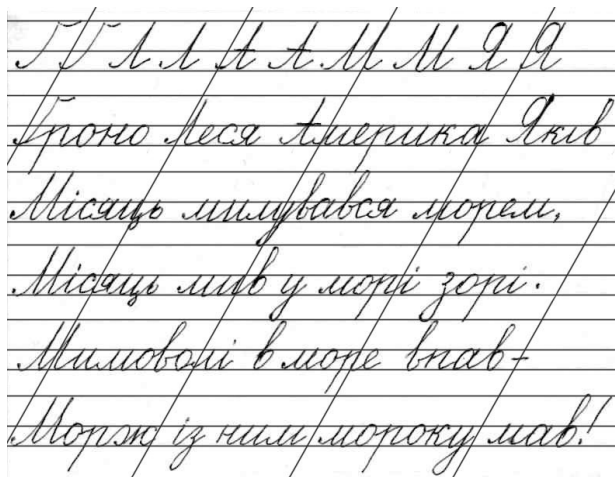 Г Г Л Л А А М М Я Я
Гроно Леся Америка Яків
Місяць милувався морем,
Місяць мив у морі зорі.
Мимоволі в море впав -
Морж із ним мороку мав!